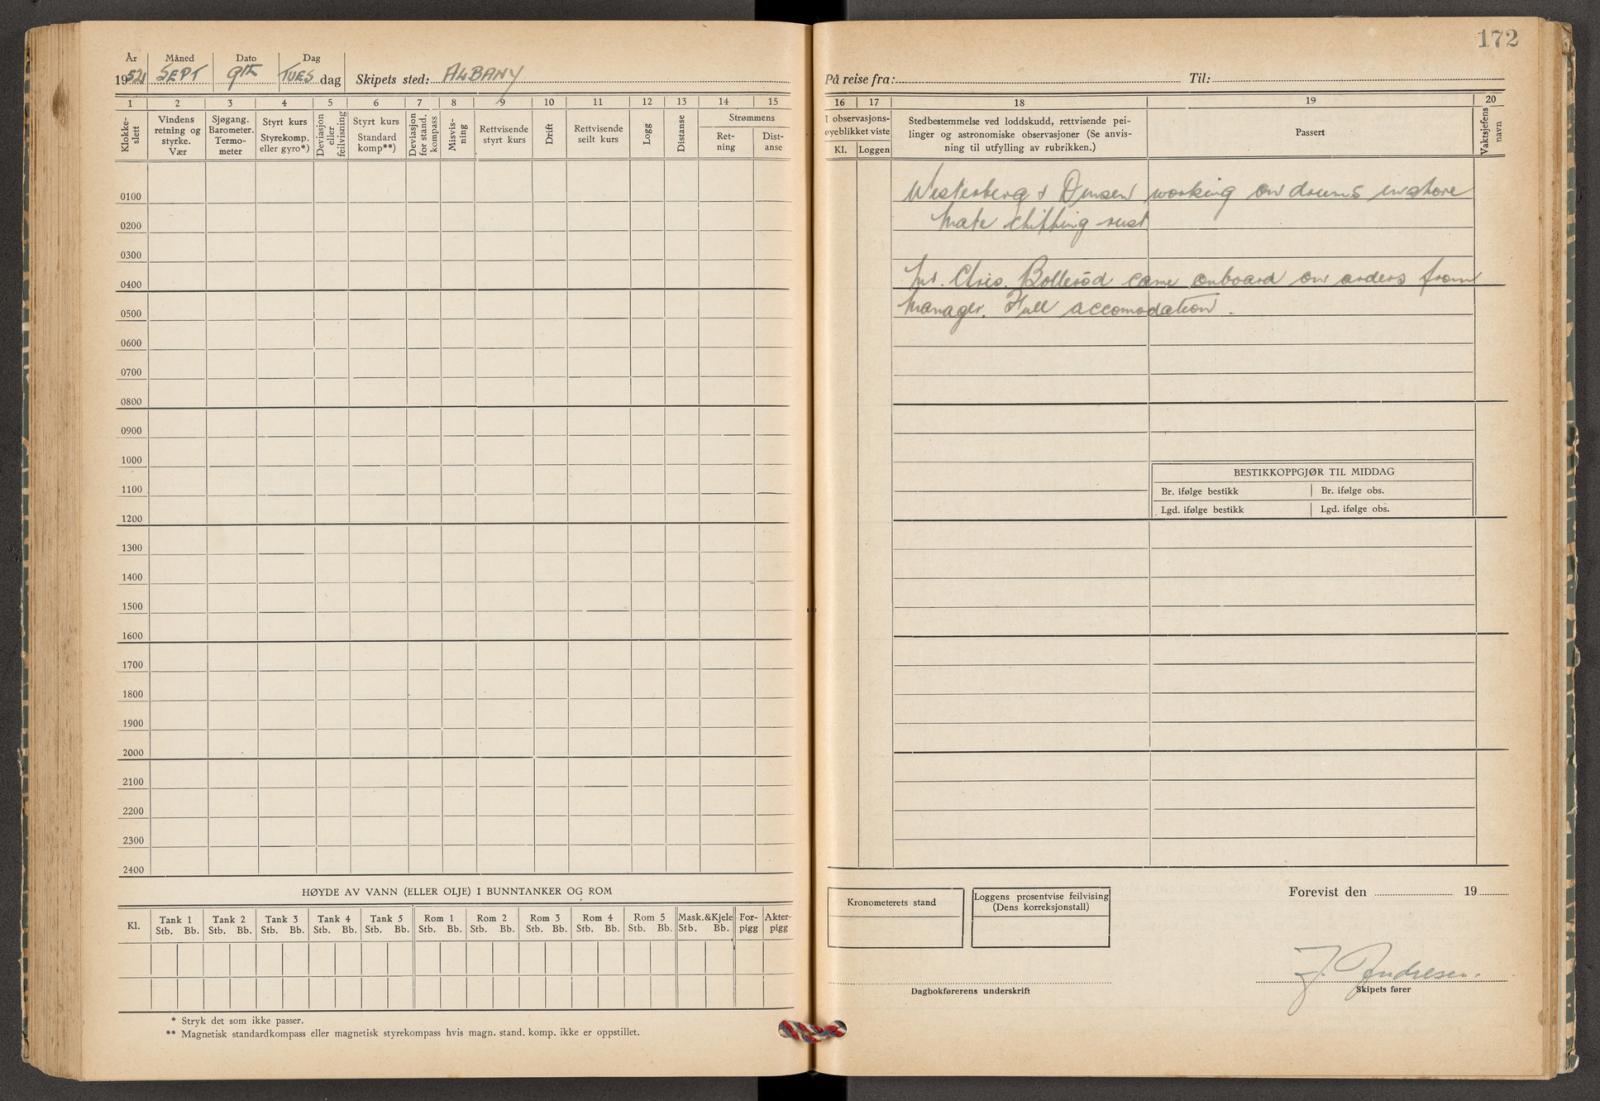 172
År Måned Dato Dag
1952 SEPT 9th TUES dag Skipets sted: ALBANY
På reise fra: Til:
1 2 3 4 5 6 7 8 9 10 11 12 13 14 15
Klokke-slett
Vindens retning og styrke. Vær
Sjøgang. Barometer. Termo-meter
Styrt kurs Styrekomp. eller gyro*)
Deviasjon eller feilvisning
Styrt kurs Standard komp**)
Deviasjon for stand. kompass
Misvis-ning
Rettvisende styrt kurs
Drift
Rettvisende seilt kurs
Logg
Distanse
Strømmens
Ret-ning
Dist-anse
0100
0200
0300
0400
0500
0600
0700
0800
0900
1000
1100
1200
1300
1400
1500
1600
1700
1800
1900
2000
2100
2200
2300
2400
HØYDE AV VANN (ELLER OLJE) I BUNNTANKER OG ROM
Kl. Tank 1 Tank 2 Tank 3 Tank 4 Tank 5 Rom 1 Rom 2 Rom 3 Rom 4 Rom 5 Mask.&Kjele For-pigg Akter-pigg
Stb. Bb. Stb. Bb. Stb. Bb. Stb. Bb. Stb. Bb. Stb. Bb. Stb. Bb. Stb. Bb. Stb. Bb. Stb. Bb. Stb. Bb.
* Stryk det som ikke passer.
** Magnetisk standardkompass eller magnetisk styrekompass hvis magn. stand. komp. ikke er oppstillet.
16 17 18 19 20
I observasjons-
øyeblikket viste
Kl. Loggen
Stedbestemmelse ved loddskudd, rettvisende pei-
linger og astronomiske observasjoner (Se anvis-
ning til utfylling av rubrikken.)
Passert
Vaktsjefens navn
Westerberg & working on drums
Mate chipping rust
Mr. Chris. Bollerød came onboard on orders from
Manager. Full accomodation.
BESTIKKOPPGJØR TIL MIDDAG
Br. ifølge bestikk Br. ifølge obs.
Lgd. ifølge bestikk Lgd. ifølge obs.
Kronometerets stand
Loggens prosentvise feilvising
(Dens korreksjonstall)
Forevist den 19
J. Andresen.
Dagbokførerens underskrift
Skipets fører